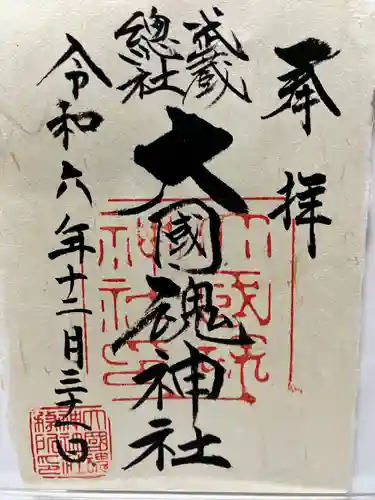 奉拝
武蔵
總社
大國魂神社
令和六年十二月三十一日